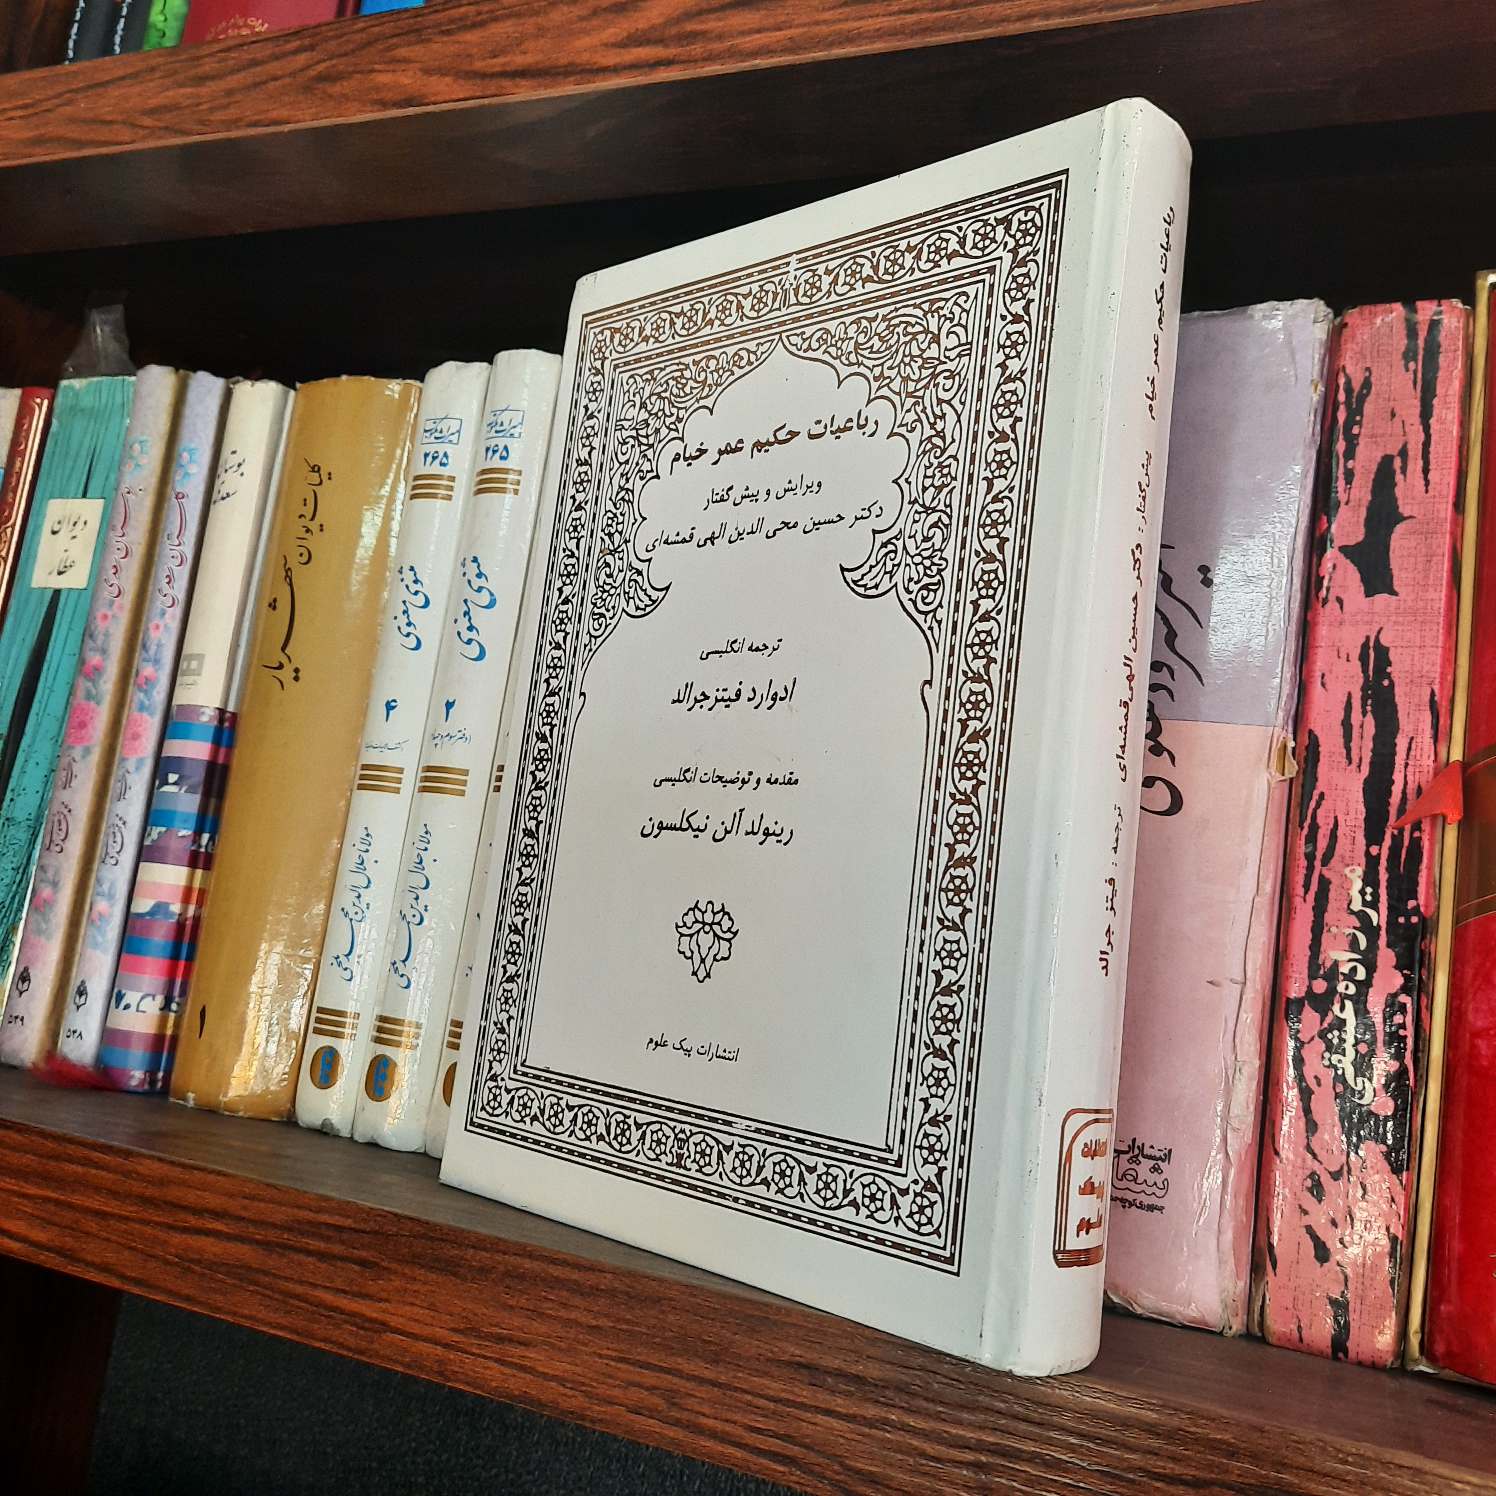 رباعیات حکیم عمر خیام
ویرایش و پیش گفتار
دکتر حسین محی الدین الهی قمشه‌ای
ترجمه انگلیسی
ادوارد فیتزجرالد
مقدمه و توضیحات انگلیسی
رینولد آلن نیکلسون
انتشارات پیک علوم
رباعیات حکیم عمر خیام پیش گفتار : دکتر حسین الهی قمشه‌ای ترجمه : فیتز جرالد
انتشارات
شما
میرزاده عشقی
۲۶۵
مثنوی معنوی
۲
دفتر سوم و چهارم
مولانا جلال الدین محمد بلخی
۲۶۵
مثنوی معنوی
۴
مولانا جلال الدین محمد بلخی
کلیات دیوان
شهریار
۱
بوستان
سعدی
گلستان سعدی
۵۳۸
بوستان سعدی
۵۳۹
دیوان
عطار